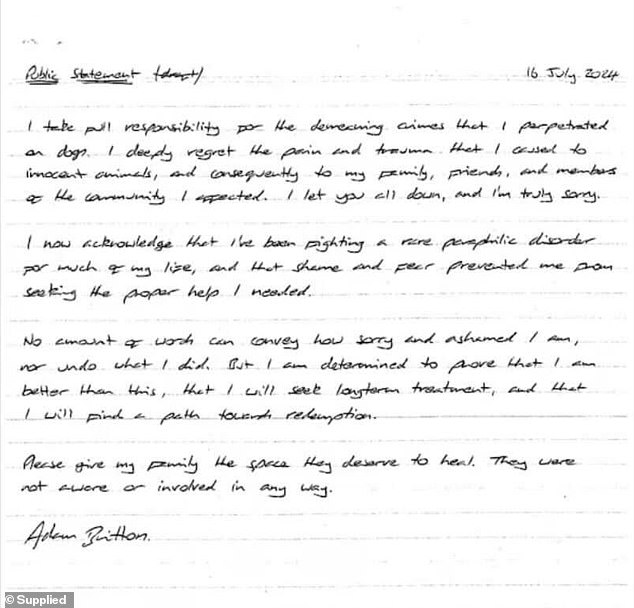 Public Statement (draft)
16 July 2024
I take full responsibility for the demeaning crimes that I perpetrated
on dogs. I deeply regret the pain and trauma that I caused to
innocent animals, and consequently to my family, friends, and members
of the community I affected. I let you all down, and I'm truly sorry.
I now acknowledge that I've been fighting a rare paraphilic disorder
for much of my life, and that shame and fear prevented me from
seeking the proper help I needed.
No amount of words can convey how sorry and ashamed I am,
nor undo what I did. But I am determined to prove that I am
better than this, that I will seek longterm treatment, and that
I will find a path towards redemption.
Please give my family the space they deserve to heal. They were
not aware or involved in any way.
Adam Britton.
© Supplied